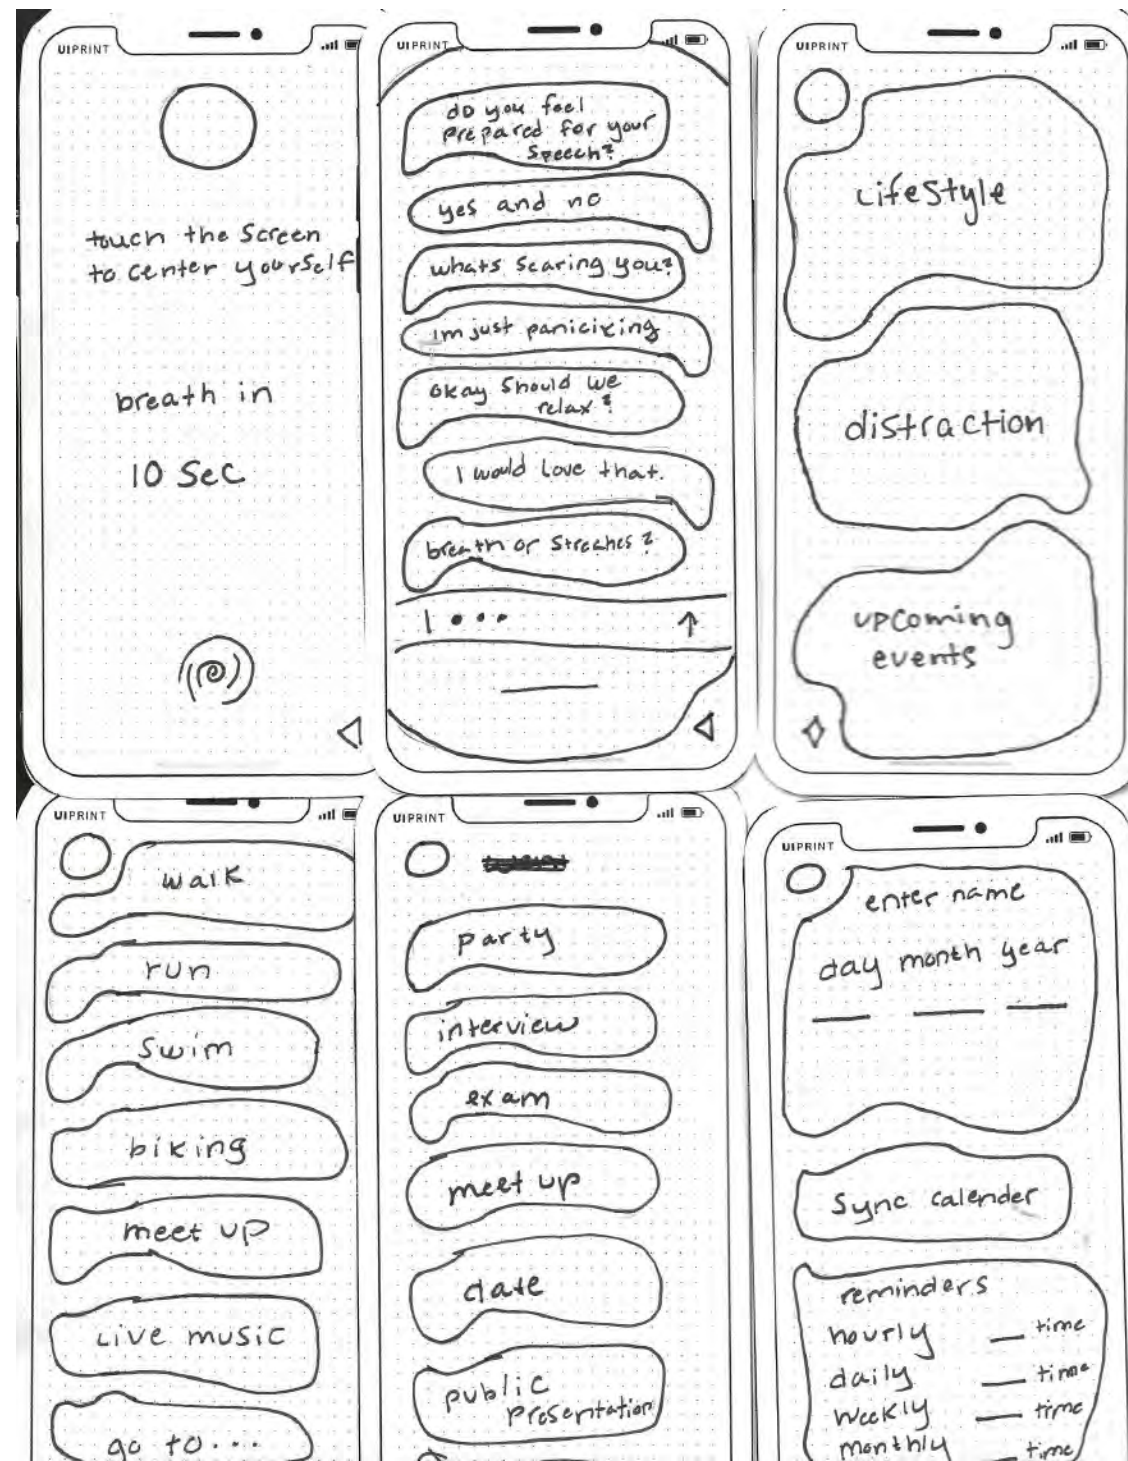 UIPRINT
touch the screen
to center yourself
breath in
10 sec
UIPRINT
do you feel
prepared for your
speech?
yes and no
whats scaring you?
im just panicixing
okay should we
relax?
I would love that.
breath or streches?
UIPRINT
Lifestyle
distraction
upcoming
events
UIPRINT
walk
run
swim
biking
meet up
Live music
go to...
UIPRINT
party
interview
exam
meet up
date
public
presentation
UIPRINT
enter name
day month year
Sync calender
reminders
hourly __ time
daily __ time
weekly __ time
monthly __ time